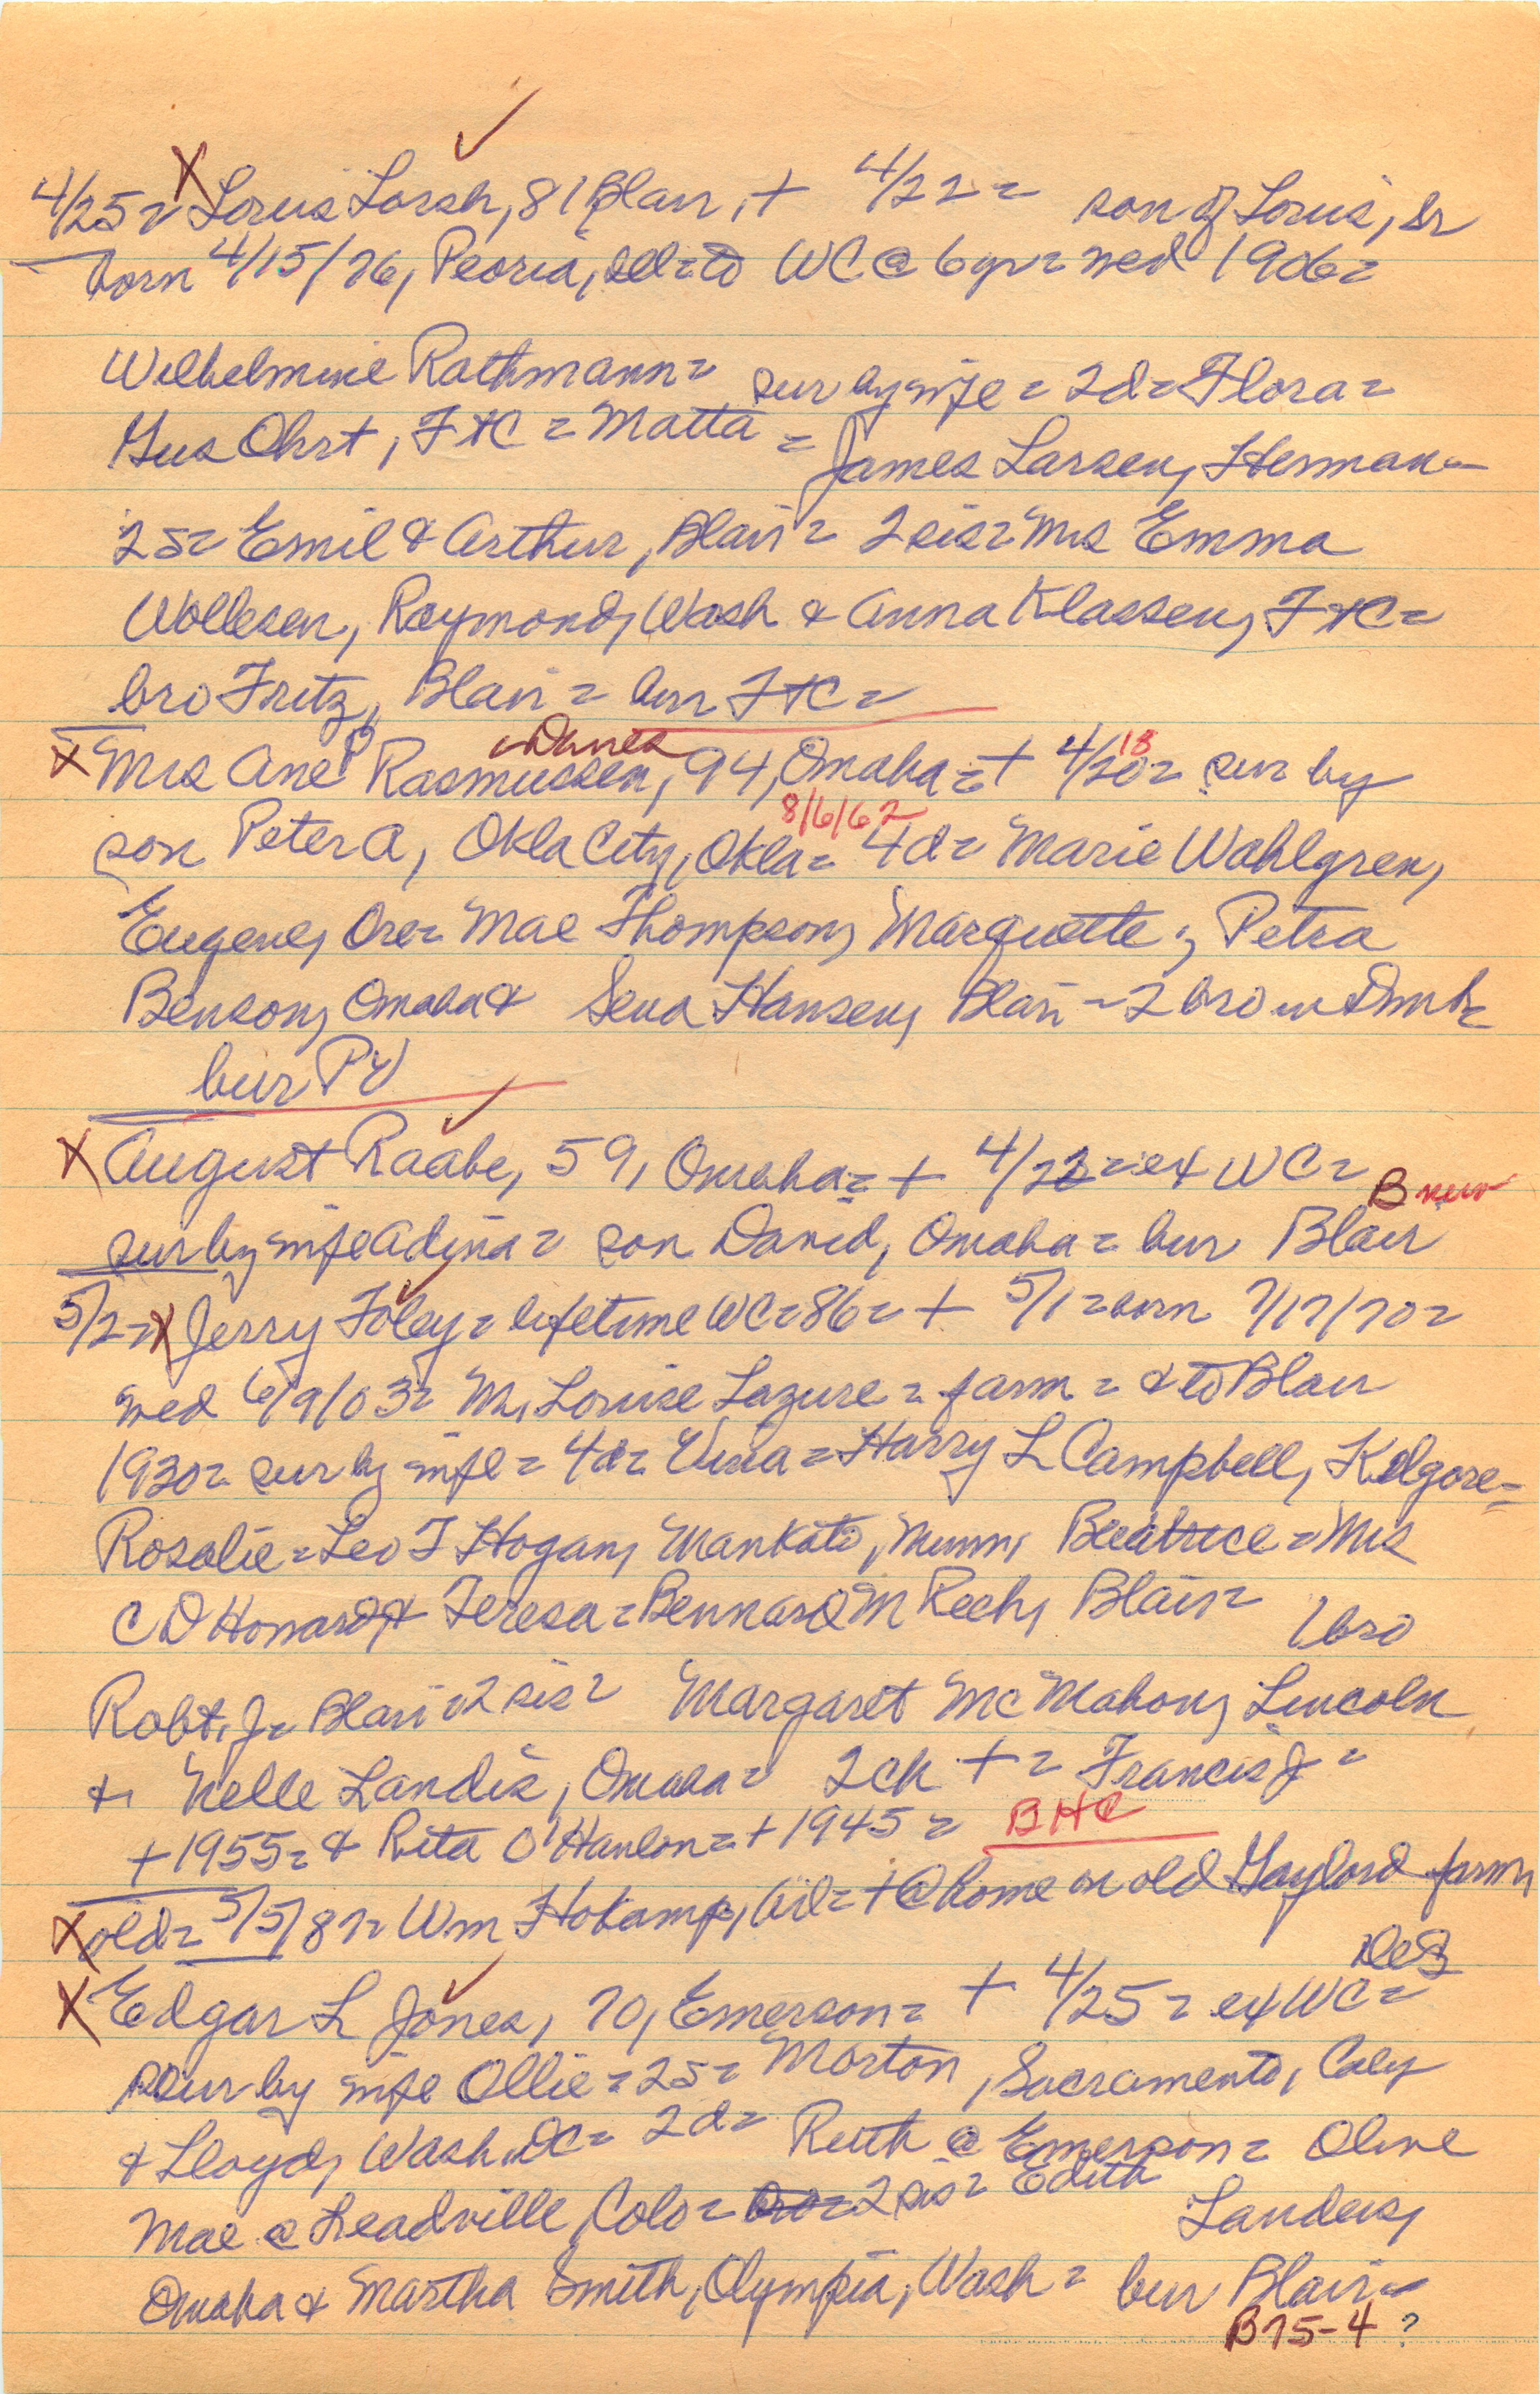 4/25= X Louis Lorsh, 81 Blair, + 4/22= son of Louis, Sr
born 4/15/76, Peoria, sel=to WC @ 6yr= wed 1906=
Wilhelmine Rathmann= sur by wife = 2d= Flora=
Gus Ohrt, FtC = Matta = James Larsen, Herman=
2s= Emil & Arthur, Blair= 2 sis= Mrs Emma
Wollesen, Raymond, Wash & Anna Klassen, FtC=
bro Fritz, Blair = bur FtC=
Danes
X Mrs Ane P Rasmussen, 94, Omaha=+ 4/20= 18 sur by
8/6/62
son Peter A, Okla City, Okla= 4d= Marie Wahlgren,
Eugene, Ore= Mae Thompson, Marquette; Petra
Benson, Omaha & Sena Hansen, Blair - 2 bro in Dmk=
bur PV
X August Raabe, 59, Omaha= + 4/22= ex WC=
B new
sur by wife Adina= son David, Omaha= bur Blair
5/2= X Jerry Foley= lifetime WC=86= + 5/1= born 7/17/70=
wed 6/9/03= M. Louise Lazure= farm= & to Blair
1930= sur by wife= 4d= Vina= Harry L Campbell, Kilgore=
Rosalie= Leo F Hogan, Mankato, Minn, Beatrice= Mrs
C D Howard, & Teresa= Bennard M Rech, Blair= 1 bro
Robt. J= Blair= 2 sis= Margaret McMahon, Lincoln
& Nelle Landis, Omaha= 2ch + = Francis J=
+1955= & Rita O'Hanlon=+1945= BHC
X old= 5/5/87= Wm Hokamp, = + @ home on old Gaylord farm,
DeS
X Edgar L Jones, 70, Emerson= + 4/25= ex WC=
sur by wife Ollie=2s= Morton, Sacramento, Calif
& Lloyd, Wash. DC= 2d= Ruth @ Emerson= Olive
Mae @ Leadville, Colo= bro= 2 sis= Edith Landers,
Omaha & Martha Smith, Olympia, Wash= bur Blair=
B75-4 ?